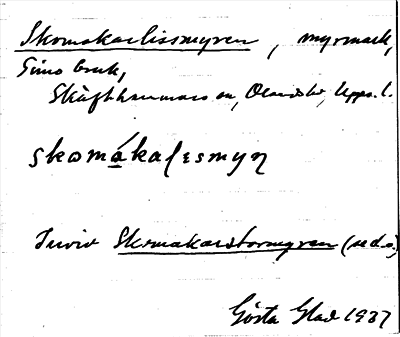 Skomakarlissmyren, myrmark,
Gimo bruk,
Skäfthammars sn, Olands hd, Upps. l.
skomákaļɛsmyɳ
Invid Skomakarstormyren (se d.o.)
Gösta Glad 1937